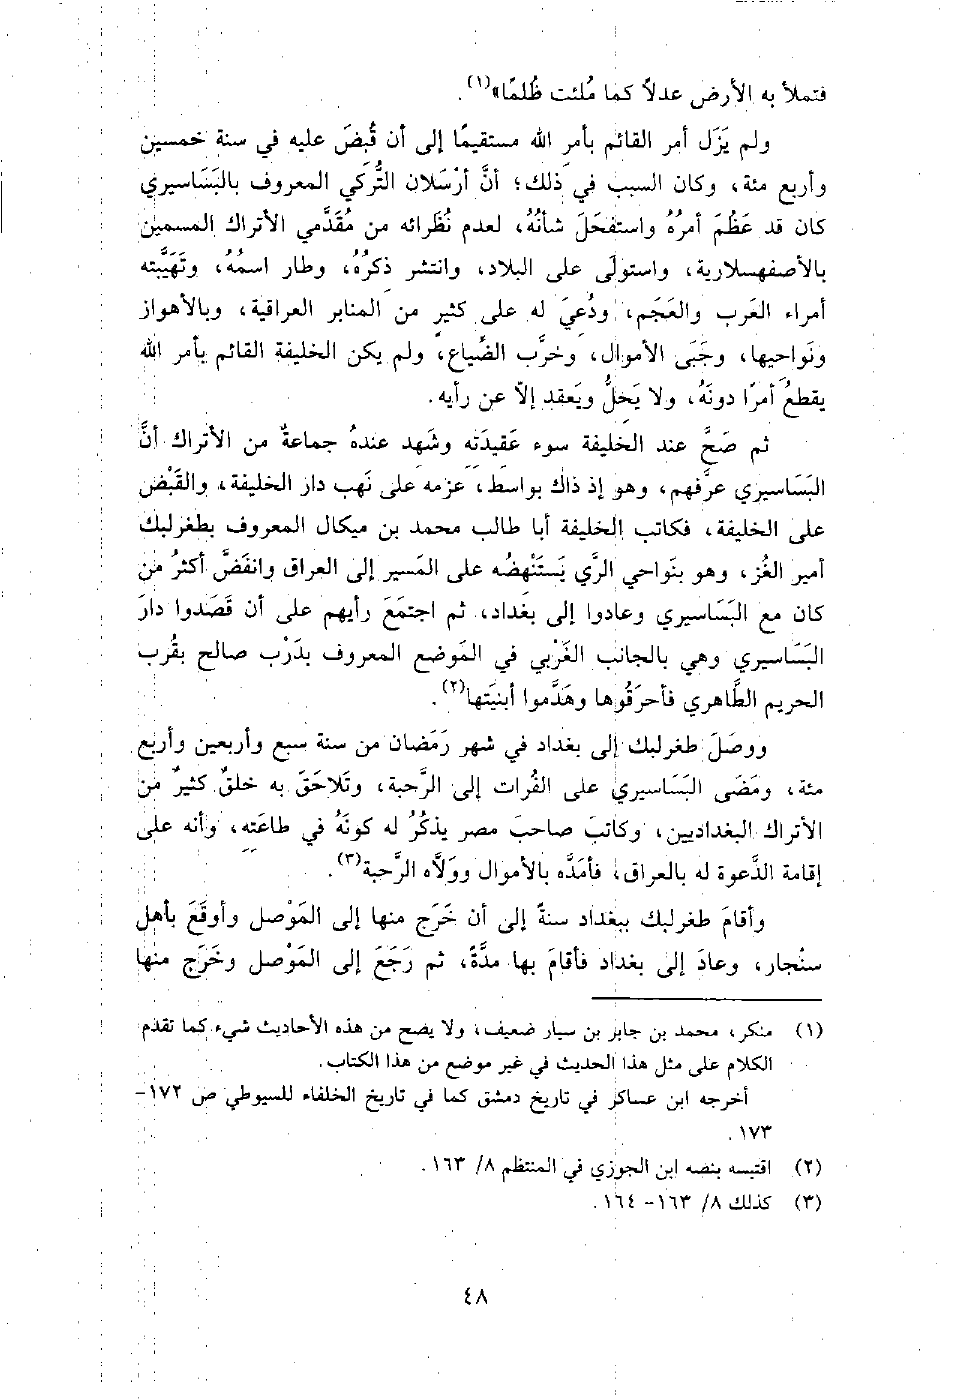 فتملأ به الأرض عدلاً كما مُلئت ظُلمًا»(١).
ولم يَزَل أمر القائم بأمر الله مستقيمًا إلى أن قُبضَ عليه في سنة خمسين
وأربع مئة، وكان السبب في ذلك؛ أنَّ أرْسَلان التُّركي المعروف بالبَسَاسيري
كان قد عَظُمَ أمرُهُ واستفحَلَ شأنُهُ، لعدم نُظَرائه من مُقدَّمي الأتراك المسمين
بالأصفهسلارية، واستولَى على البلاد، وانتشر ذكرُهُ، وطار اسمُهُ، وتَهَيَّبته
أمراء العَرب والعَجَم، ودُعيَ له على كثير من المنابر العراقية، وبالأهواز
ونَواحيها، وجَبَى الأموال، وخرَّب الضِّياع، ولم يكن الخليفة القائم بأمر الله
يقطعُ أمرًا دونَهُ، ولا يَحِلُّ ويَعقد إلاّ عن رأيه.
ثم صَحَّ عند الخليفة سوء عَقيدَته وشَهد عندهُ جماعةٌ من الأتراك أنَّ
البَسَاسيري عرَّفهم، وهو إذ ذاك بواسط، عزمه على نَهب دار الخليفة، والقَبْض
على الخليفة، فكاتب الخليفة أبا طالب محمد بن ميكال المعروف بطغرلبك
أمير الغُز، وهو بنَواحي الرَّي يَستَنْهِضُه على المَسير إلى العراق وانفَضَّ أكثرُ من
كان مع البَسَاسيري وعادوا إلى بغداد، ثم اجتمَعَ رأيهم على أن قَصَدوا دارَ
البَسَاسيري وهي بالجانب الغَرْبي في المَوضع المعروف بدَرْب صالح بقُرب
الحريم الطَّاهري فأحرَقُوها وهَدَّموا أبنيَتها(٢).
ووصَلَ طغرلبك إلى بغداد في شهر رَمَضان من سنة سبع وأربعين وأربع
مئة، ومَضَى البَسَاسيري على الفُرات إلى الرَّحبة، وتَلاحَقَ به خلقٌ كثيرٌ من
الأتراك البغداديين، وكاتبَ صاحبَ مصر يذكُرُ له كونَهُ في طاعَته، وأنه على
إقامة الدَّعوة له بالعراق، فأمَدَّه بالأموال ووَلاَّه الرَّحبة(٣).
وأقامَ طغرلبك ببغداد سنةً إلى أن خَرَج منها إلى المَوْصل وأوقَعَ بأهل
سنْجار، وعادَ إلى بغداد فأقامَ بها مدَّةً، ثم رَجَعَ إلى المَوْصل وخَرَج منها
(١) منكر، محمد بن جابر بن سيار ضعيف، ولا يصح من هذه الأحاديث شيء كما تقدم
الكلام على مثل هذا الحديث في غير موضع من هذا الكتاب.
أخرجه ابن عساكر في تاريخ دمشق كما في تاريخ الخلفاء للسيوطي ص ١٧٢-
١٧٣.
(٢) اقتبسه بنصه ابن الجوزي في المنتظم ٨/ ١٦٣.
(٣) كذلك ٨/ ١٦٣- ١٦٤.
٤٨